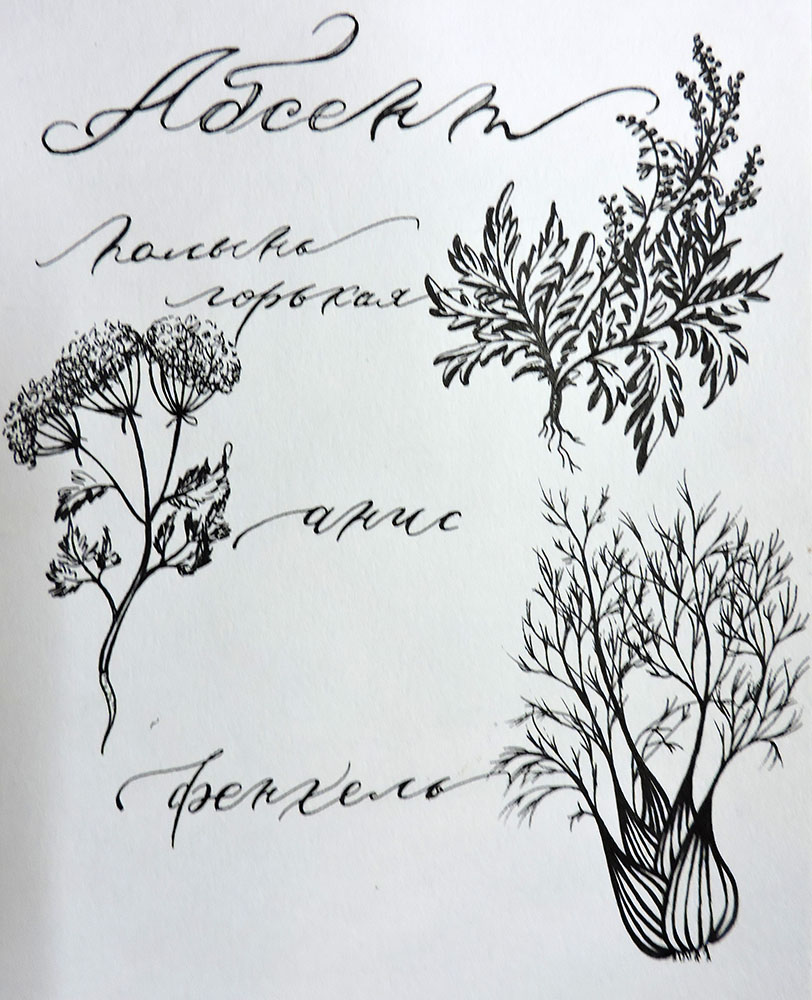 Абсент
полынь
горькая
анис
фенхель